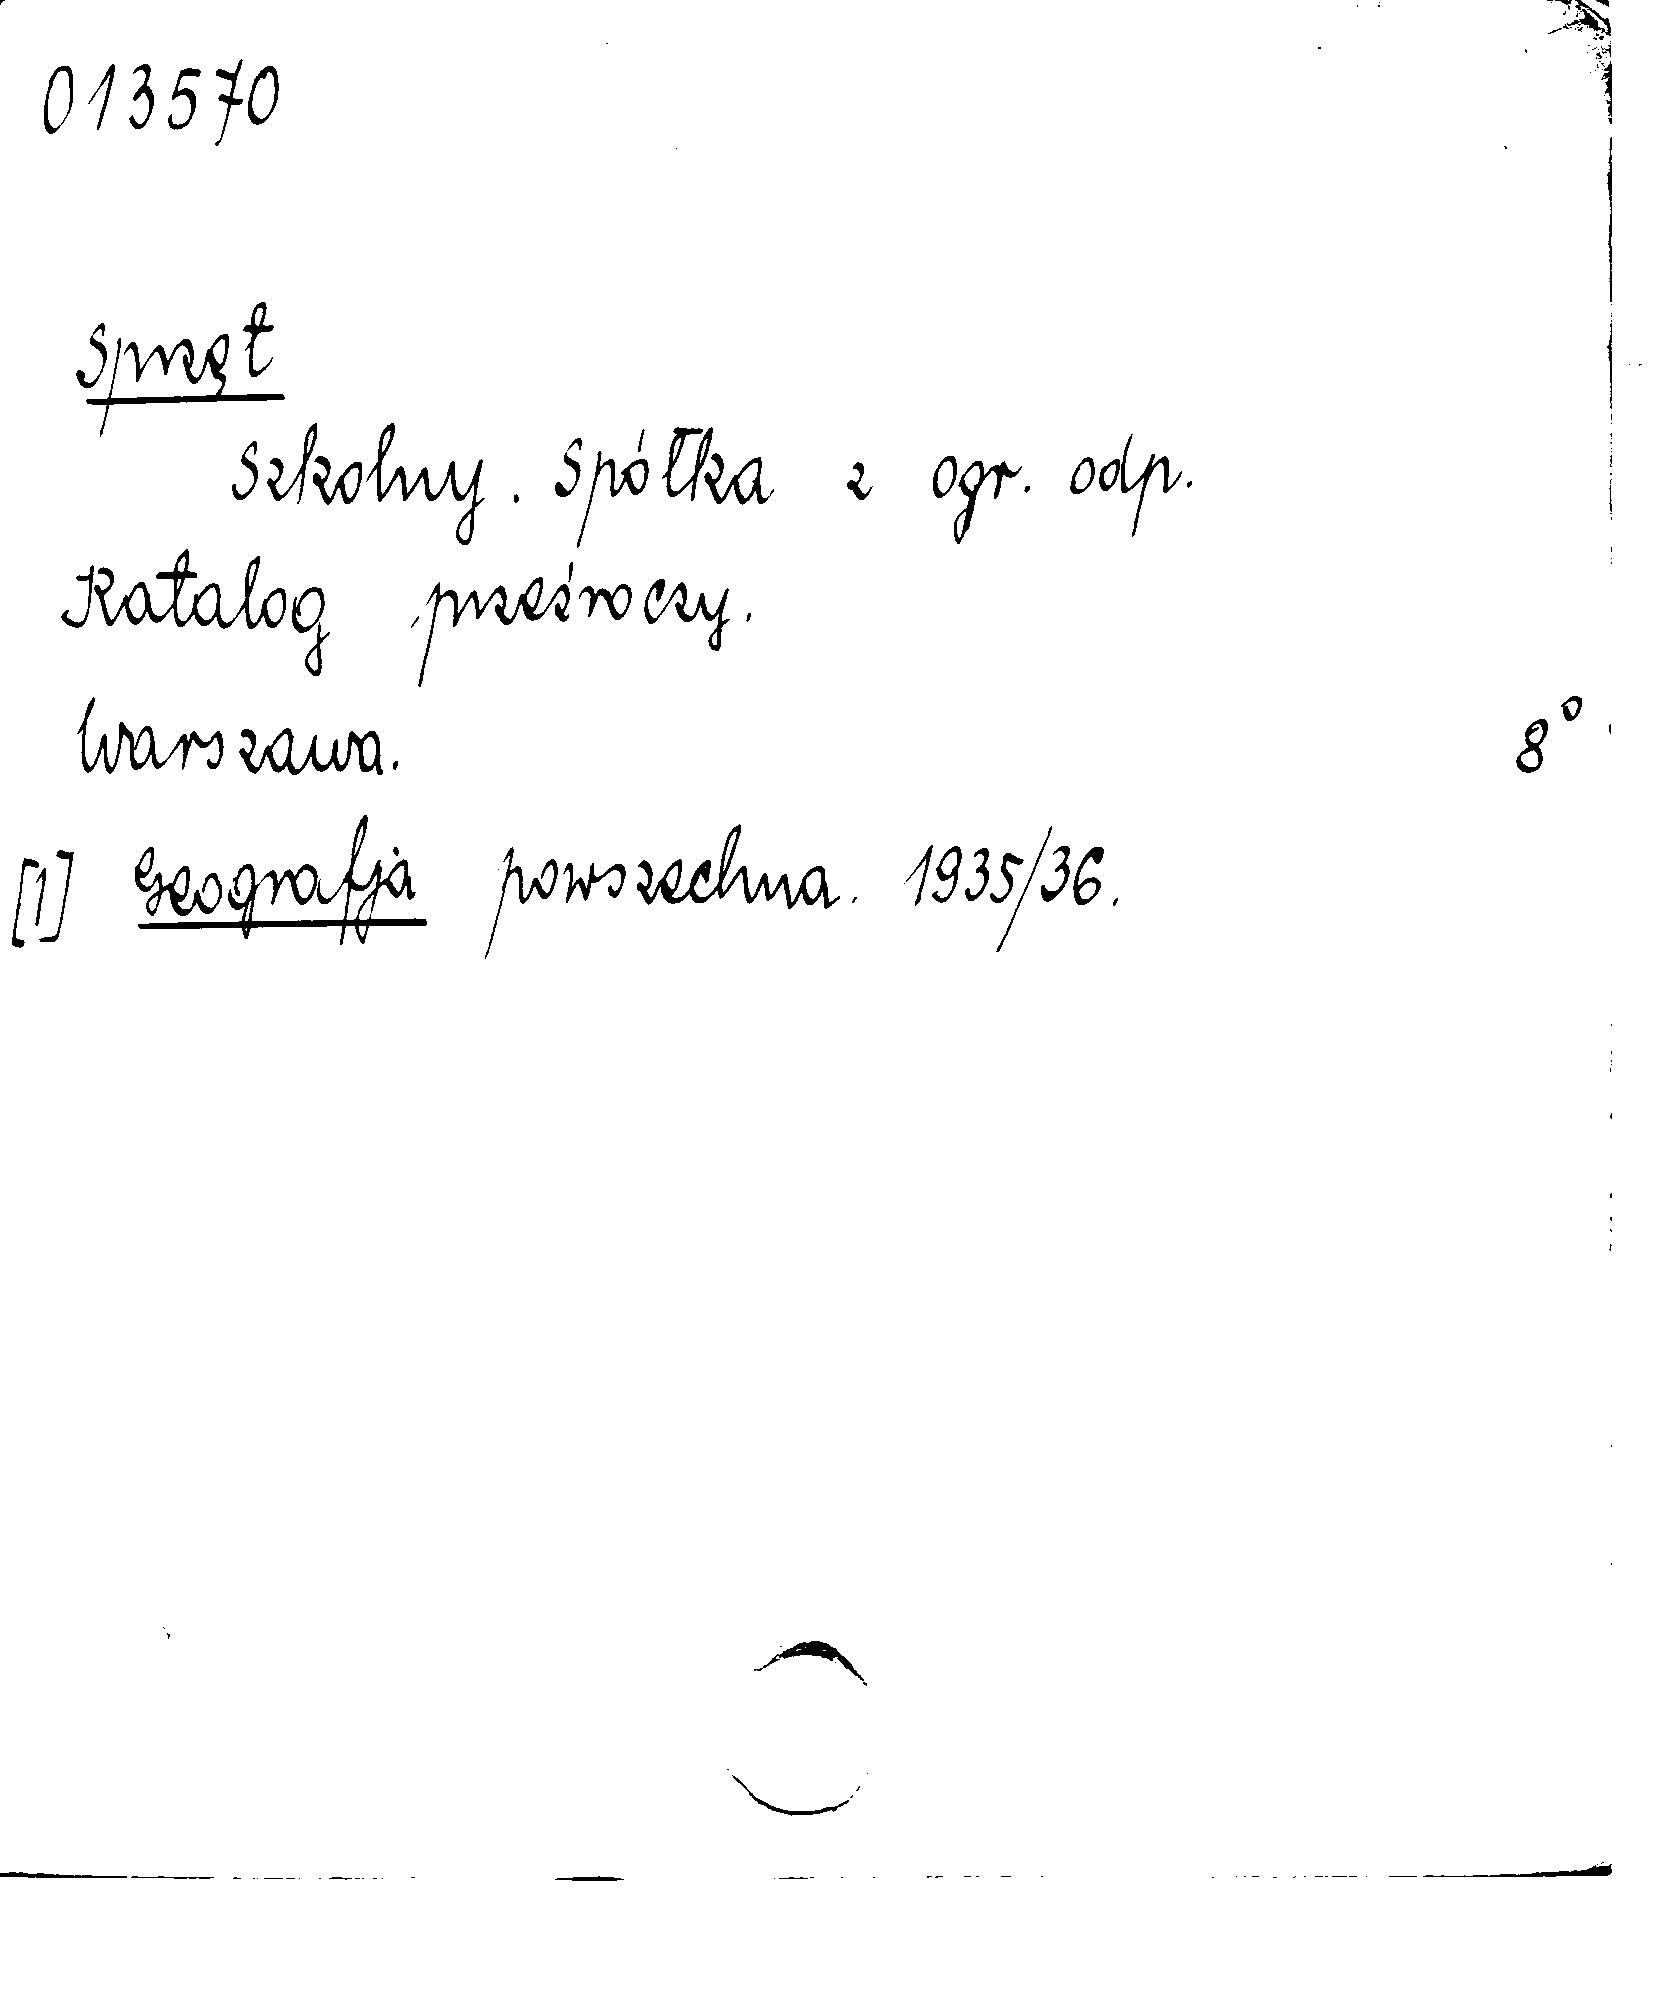 013570
Sprzęt
Szkolny. Spółka z ogr. odp.
Katalog przeźroczy.
Warszawa. 8°
[1] Geografja powszechna. 1935/36.